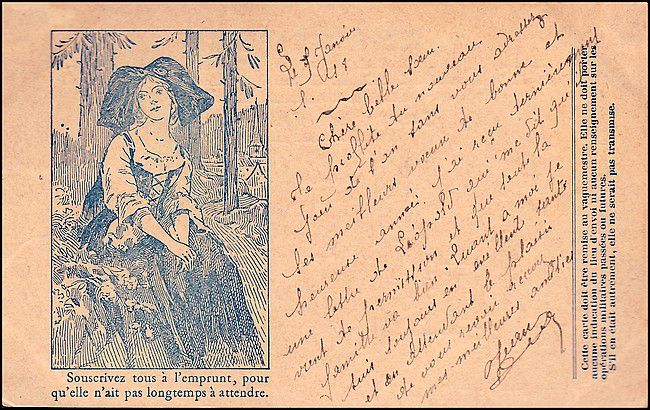 Souscrivez tous à l'emprunt, pour
qu'elle n'ait pas longtemps à attendre.
Le Janvier
18
Chère belle sœur.
Je profite du nouveau
jour de l'an sans vous adresser
mes meilleurs vœux de bonne et
heureuse année j'ai reçu dernièrement
une lettre de Léopold qui me dit qu'il
vient de permission et que toute la
famille va bien. Quant a moi je
suis toujours en excellent santé
et en attendant le plaisir
de vous revoir recevez
mes meilleures amitiés
Cette carte doit être remise au vaguemestre. Elle ne doit porter
aucune indication du lieu d'envoi ni aucun renseignement sur les
opérations militaires passées ou futures.
S'il en était autrement, elle ne serait pas transmise.